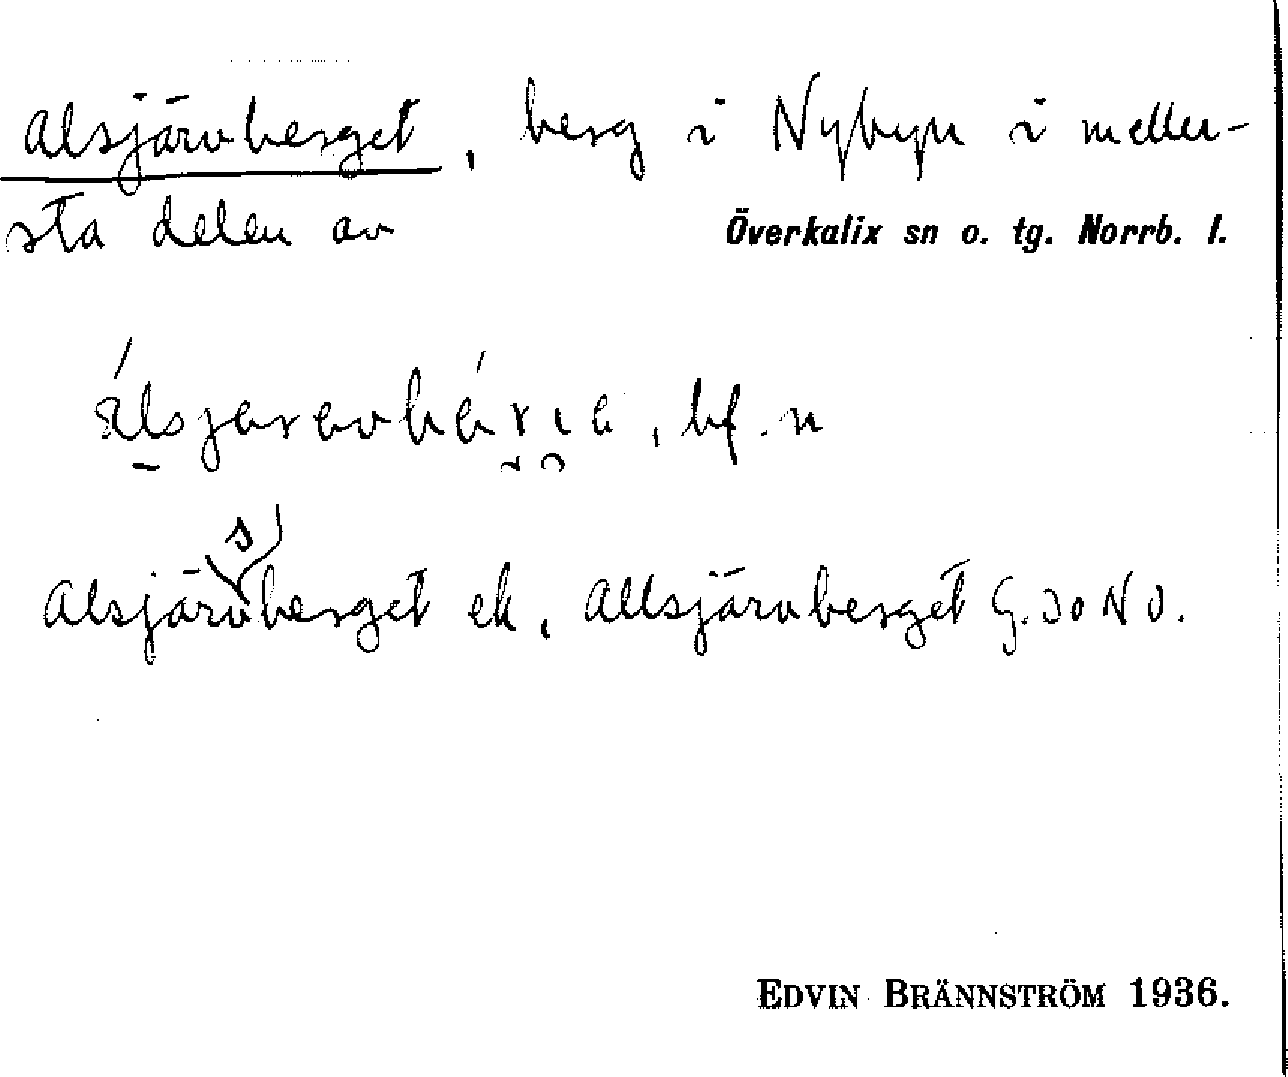 Alsjärvberget, berg i Nybyn i meller-
sta delen av Överkalix sn o. tg. Norrb. l.
bf. n
s
Alsjärvberget ek, Allsjärvberget G. 30 NO.
EDVIN BRÄNNSTRÖM 1936.